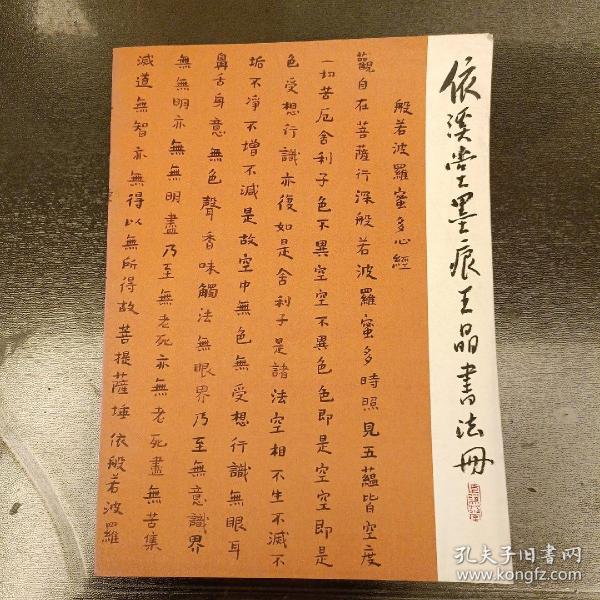 依溪堂墨痕王晶書法冊
般若波羅蜜多心經
觀自在菩薩行深般若波羅蜜多時照見五蘊皆空度
一切苦厄舍利子色不異空空不異色色即是空空即是
色受想行識亦復如是舍利子是諸法空相不生不滅不
垢不淨不增不減是故空中無色無受想行識無眼耳
鼻舌身意無色聲香味觸法無眼界乃至無意識界
無無明亦無無明盡乃至無老死亦無老死盡無苦集
滅道無智亦無得以無所得故菩提薩埵依般若波羅
孔夫子旧书网
www.kongfz.com